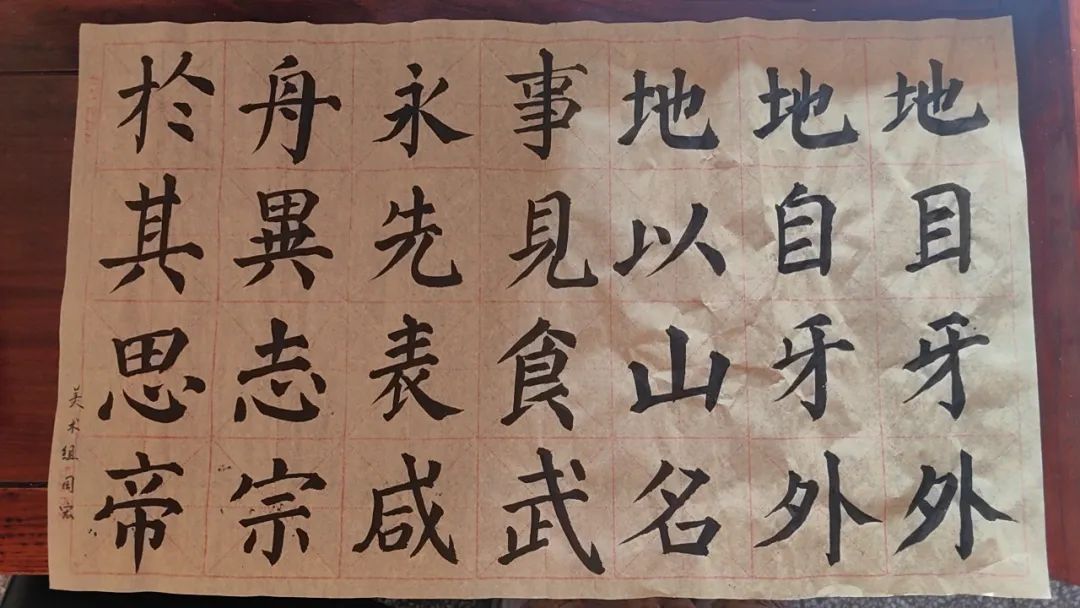 地目牙外
地自牙外
地以山名
事見食武
永先表咸
舟異志宗
於其思帝
美术组